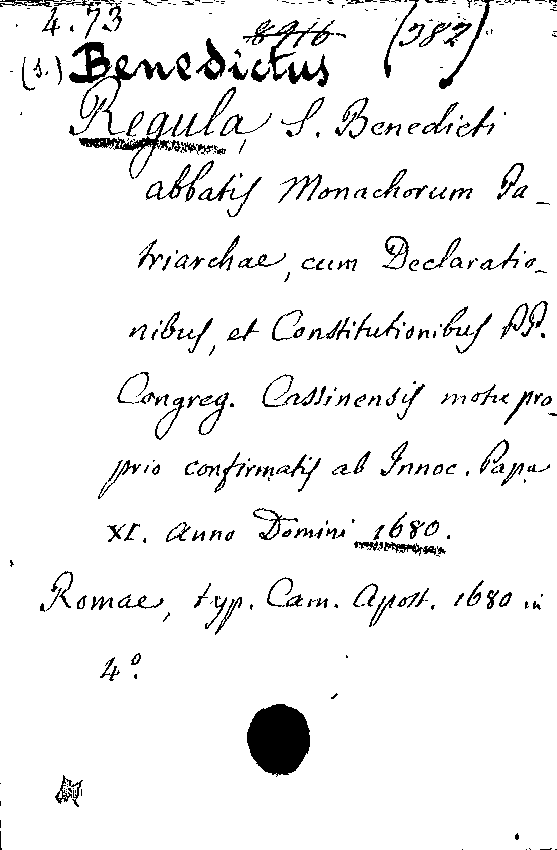 4.73 8916 (382)
(s.) Benedictus
Regula, S. Benedicti
abbatis Monachorum Pa-
triarchae, cum Declaratio-
nibus, et Constitutionibus PP.
Congreg. Cassinensis motu pro-
prio confirmatis ab Innoc. Papa
XI. Anno Domini 1680.
Romae, typ. Cam. Apost. 1680 in
4°.